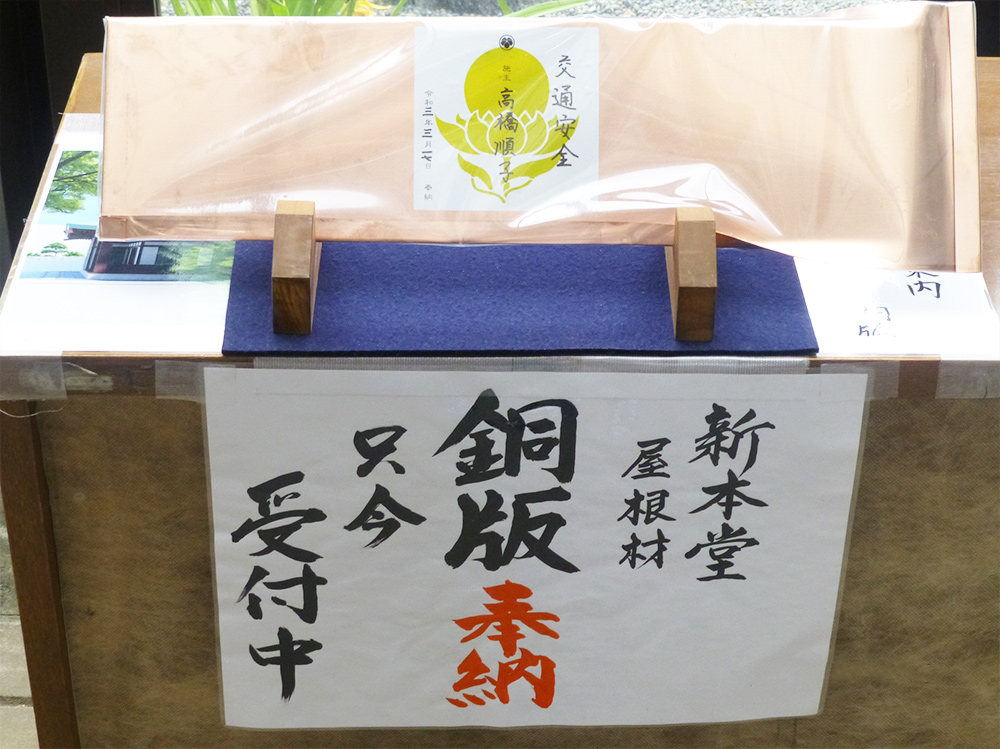 交通安全
施主 高橋順子
令和三年三月十七日 奉納
案内
銅版
新本堂
屋根材
銅版奉納
只今
受付中